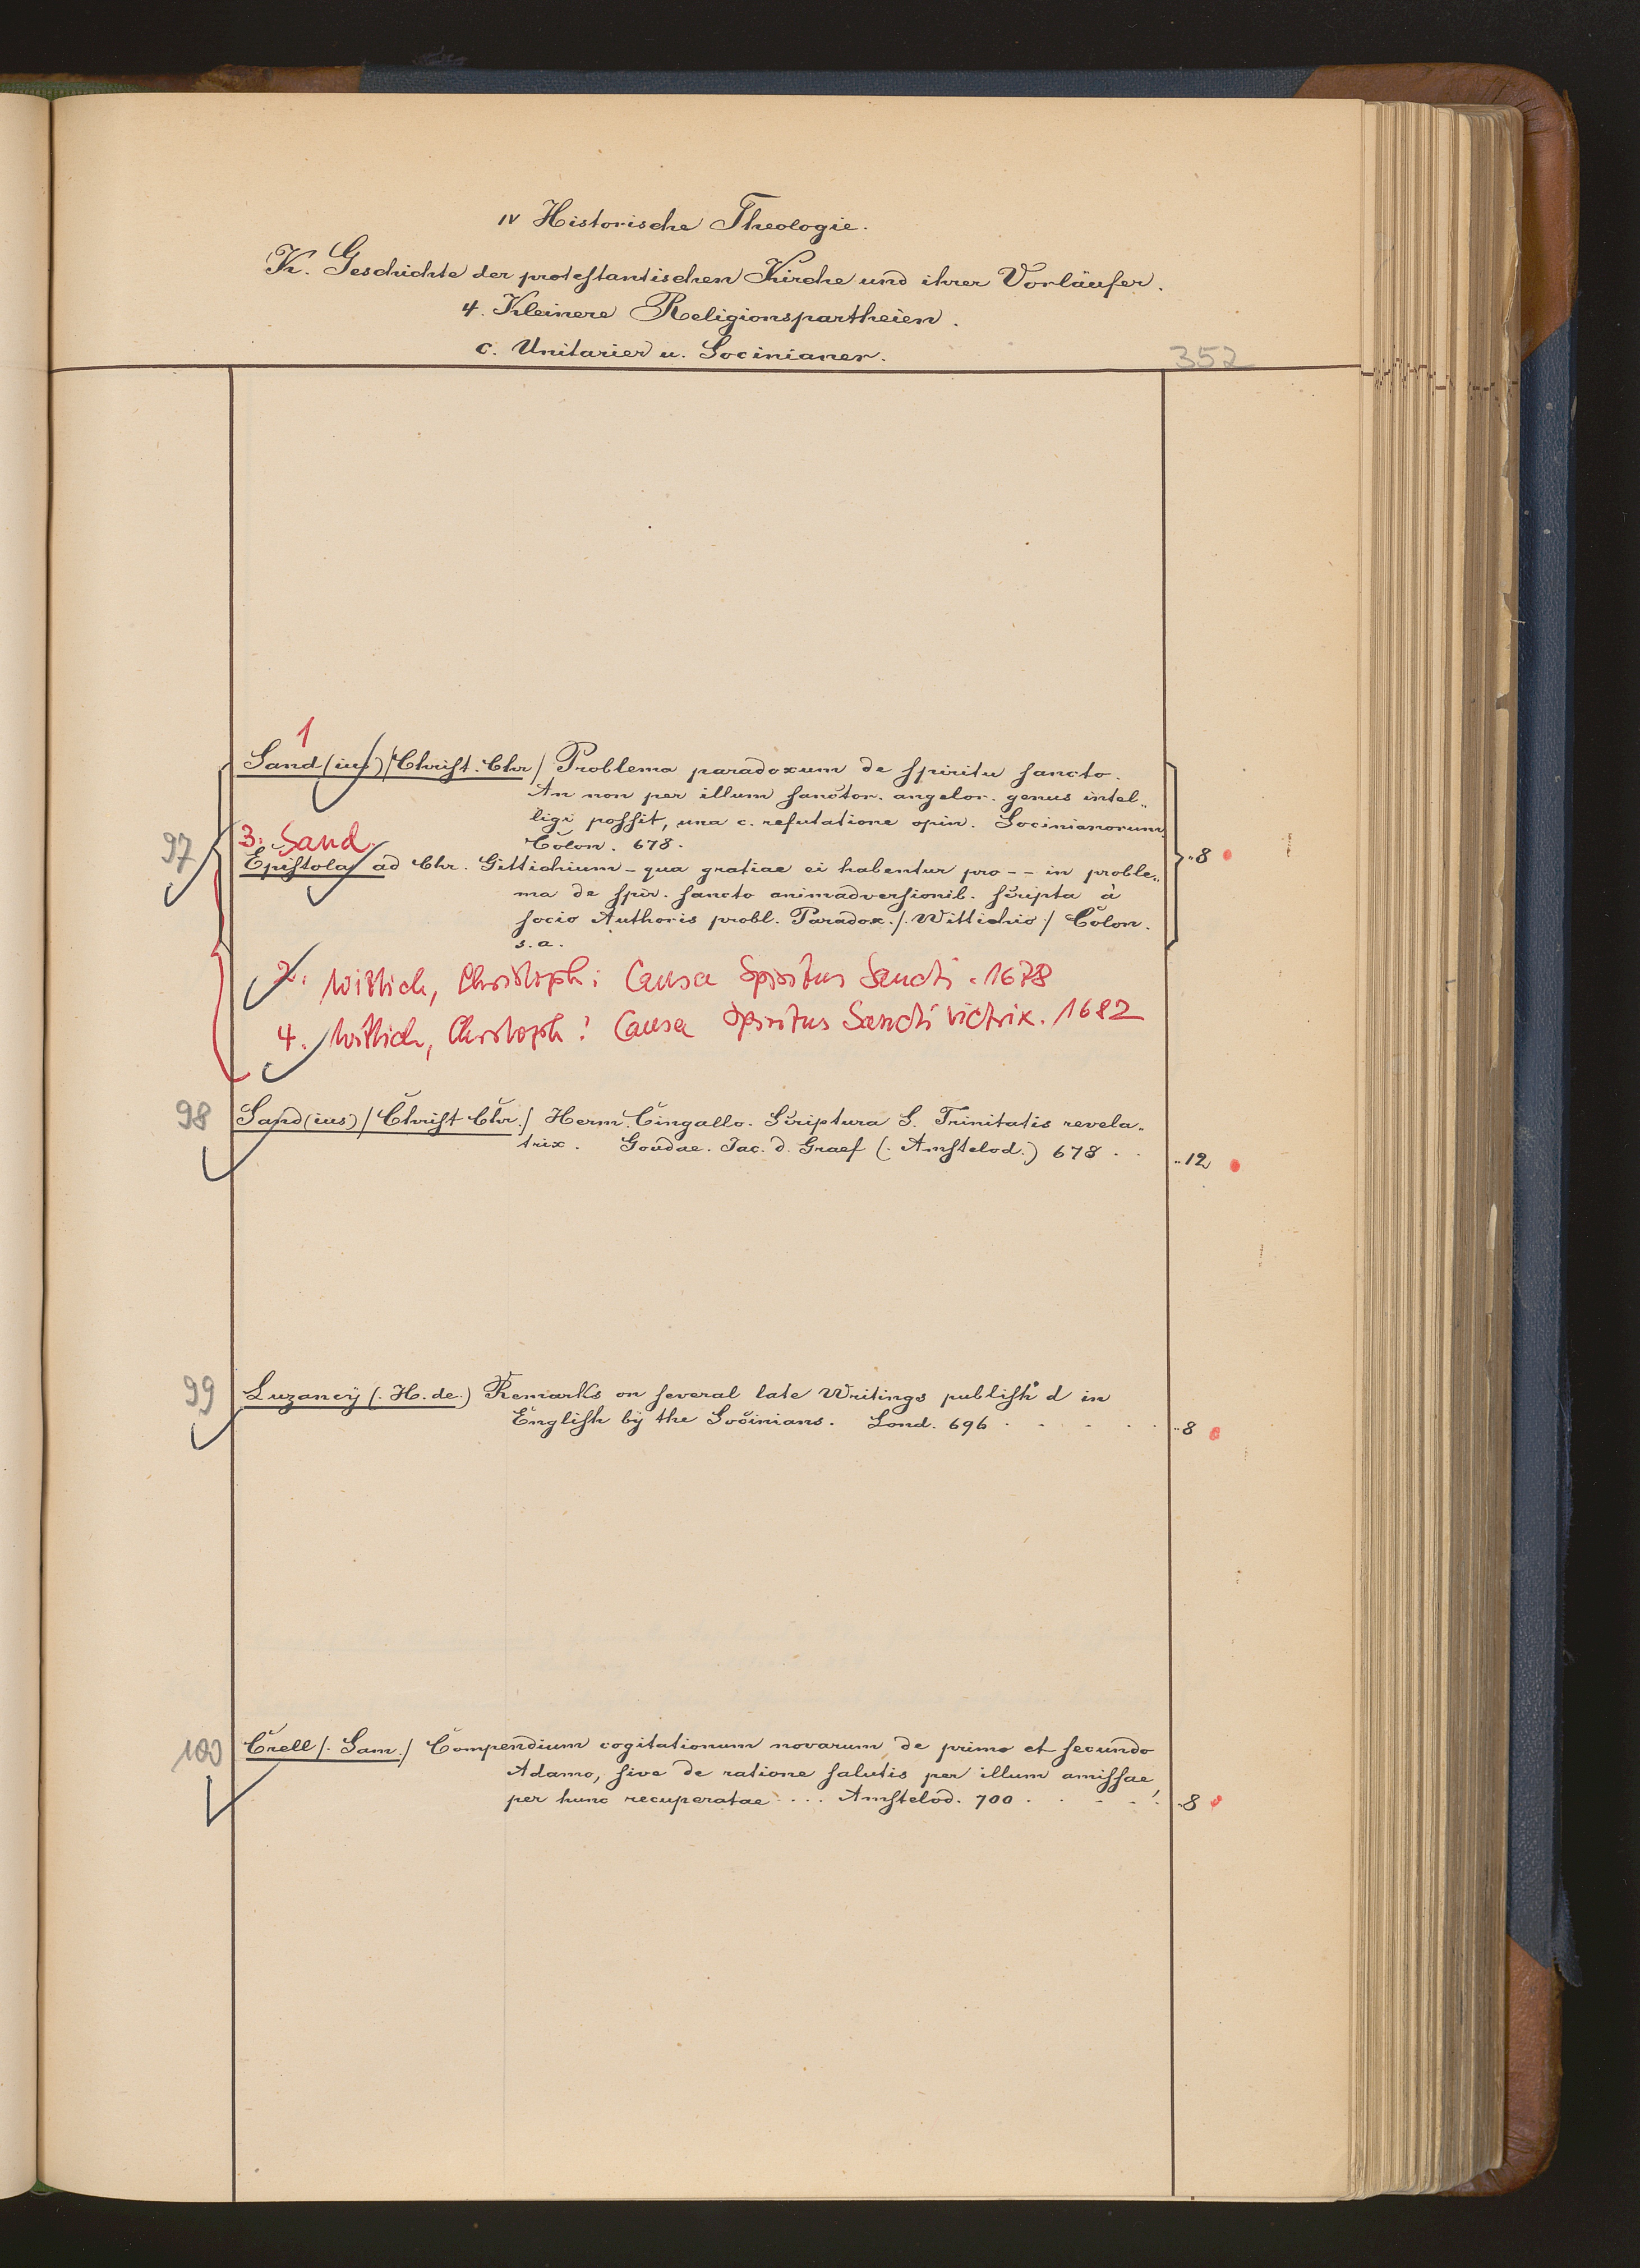 IV Historische Theologie.
K. Geschichte der protestantischen Kirche und ihrer Vorläufer.
4. Kleinere Religionspartheien.
c. Unitarier u. Socinianer.
352
1
Sand(ius) /Christ. Chr./ Problema paradoxum de spiritu sancto.
An non per illum sanctor. angelor. genus intel„
ligi possit, una c. refutatione opin. Socinianorum.
Colon. 678.
97
3. Sand.
Epistola ad Chr. Gittichium - qua gratiae ei habentur pro -- in proble„
ma de spir. sancto animadversionib. scripta à
socio Authoris probl. Paradox. /. Wittichio ./ Colon.
s. a.
„8
2. Wittich, Christoph: Causa Spiritus Sancti. 1678
4. Wittich, Christoph: Causa Spiritus Sancti victrix. 1682
98 Sand(ius) / Christ Chr./ Herm. Cingallo. Scriptura S. Trinitatis revela„
trix. Goudae. Jac. d. Graef (. Amstelod.) 678 . . „12
99 Luzancÿ (. H. de.) Remarks on several late Writings publish'd in
English bÿ the Socinians. Lond. 696 . . . . . „8
100 Crell /. Sam./ Compendium cogitationum novarum de primo et secundo
Adamo, sive de ratione salutis per illum amissae,
per hunc recuperatae ... Amstelod. 700 . . . . . „8